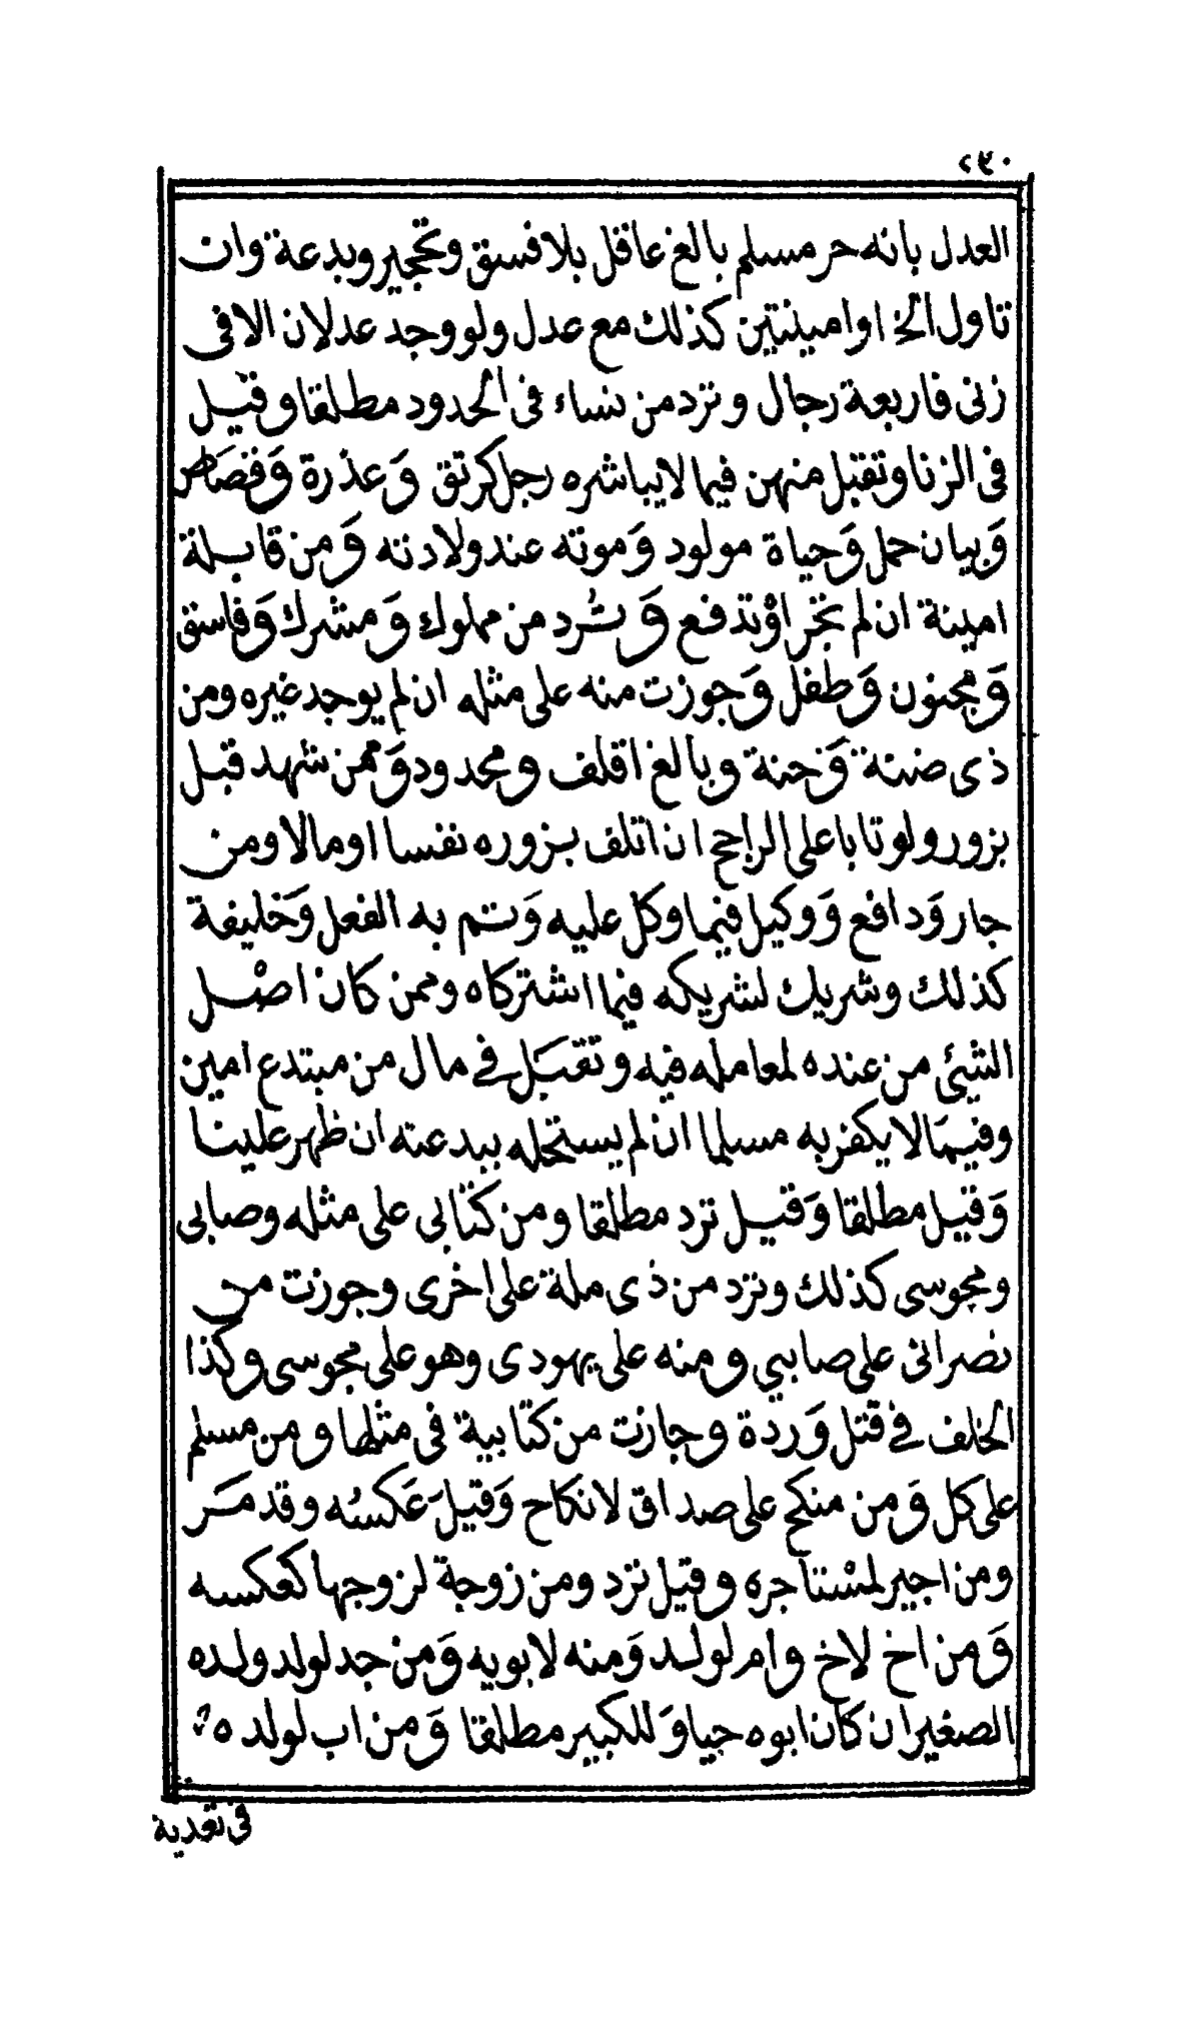 ٢٤٠
العدل بانه حر مسلم بالغ عاقل بلا فسق وتحجير وبدعة وان
تاول الخ او امينتين كذلك مع عدل ولو وجد عدلان الا فى
زنى فاربعة رجال وترد من نساء فى الحدود مطلقا وقيل
فى الزنا وتقبل منهن فيما لا يباشره رجل كرتق وَعذرة وَ
وَبيان حمل وَحياة مولود وَموته عند ولادته وَمن قابلة
امينة ان لم تجر اوْتدفع وَتُرد من مملوك وَمشرك وَفاسق
وَمجنون وَطفل وَجوزت منه على مثله ان لم يوجد غيره ومن
ذى ضنة وَحنة وبالغ اقلف ومحدود وَممن شهد قبل
بزور ولو تابا على الراجح ان اتلف بزوره نفسا او مالا ومن
جار وَدافع وَوكيل فيما وكل عليه وَتم به الفعل وَخليفة
كذلك وشريك لشريكه فيما اشتركاه وممن كان اصْل
الشيئ من عنده لمعامله فيه وتقبَل فى مال من مبتدع امين
وفيمَا لا يكفر به مسلما ان لم يستحله ببدعته ان ظهر علينا
وَقيل مطلقا وَقيل ترد مطلقا ومن كتابى على مثله وصابى
ومجوسى كذلك وترد من ذى ملة على اخرى وجوزت من
نصرانى على صابيي ومنه على يهودى وهو على مجوسى وكذا
الخلف فى قتل وَردة وجازت من كتابية فى مثلها ومن مسلم
على كل وَمن منكح على صداق لا نكاح وَقيلَ عَكسُه وقد مَر
ومن اجير لمسْتاجره وقيل ترد ومن زوجة لزوجها كعكسه
وَمن اخ لاخ وام لولد وَمنه لابويه وَمن جد لولد ولده
الصغير ان كان ابوه حيا وَللكبير مطلقا وَمن اب لولده
فى تعدية